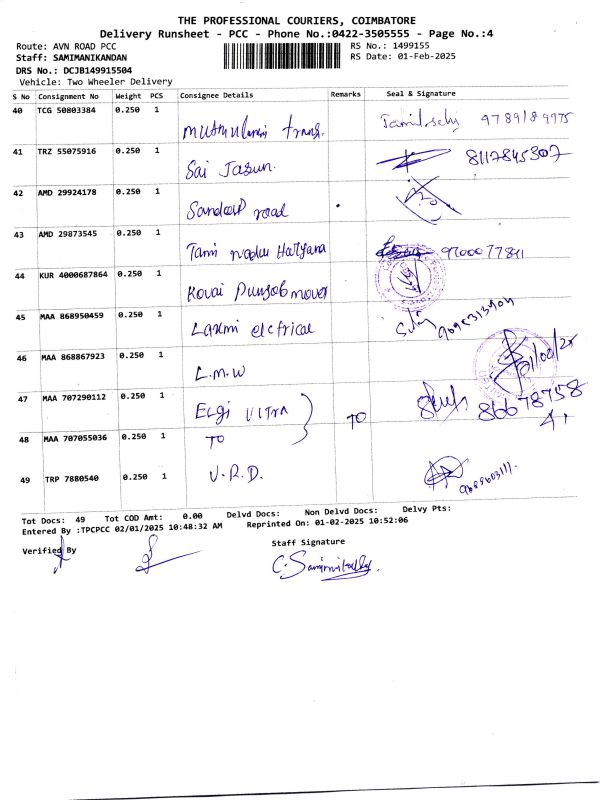 THE PROFESSIONAL COURIERS, COIMBATORE
Delivery Runsheet - PCC - Phone No.:0422-3505555 - Page No.:4
Route: AVN ROAD PCC
RS No.: 1499155
Staff: SAMIMANIKANDAN
RS Date: 01-Feb-2025
DRS No.: DCJB149915504
Vehicle: Two Wheeler Delivery
S No Consignment No Weight PCS Consignee Details Remarks Seal & Signature
40 TCG 50803384 0.250 1 trans. 9789189975
41 TRZ 55075916 0.250 1 Sai Jasun. 8117845307
42 AMD 29924178 0.250 1 road
43 AMD 29873545 0.250 1 Tami nadu Haryana
44 KUR 4000687864 0.250 1 Kovai
45 MAA 868950459 0.250 1 Laxmi
46 MAA 868867923 0.250 1 L.M.W
47 MAA 707290112 0.250 1 ELgi ULTRA TO 86678758
41
48 MAA 707055036 0.250 1 TO
49 TRP 7880540 0.250 1 U.R.D.
Tot Docs: 49 Tot COD Amt: 0.00 Delvd Docs: Non Delvd Docs: Delvy Pts:
Entered By :TPCPCC 02/01/2025 10:48:32 AM Reprinted On: 01-02-2025 10:52:06
Verified By
Staff Signature